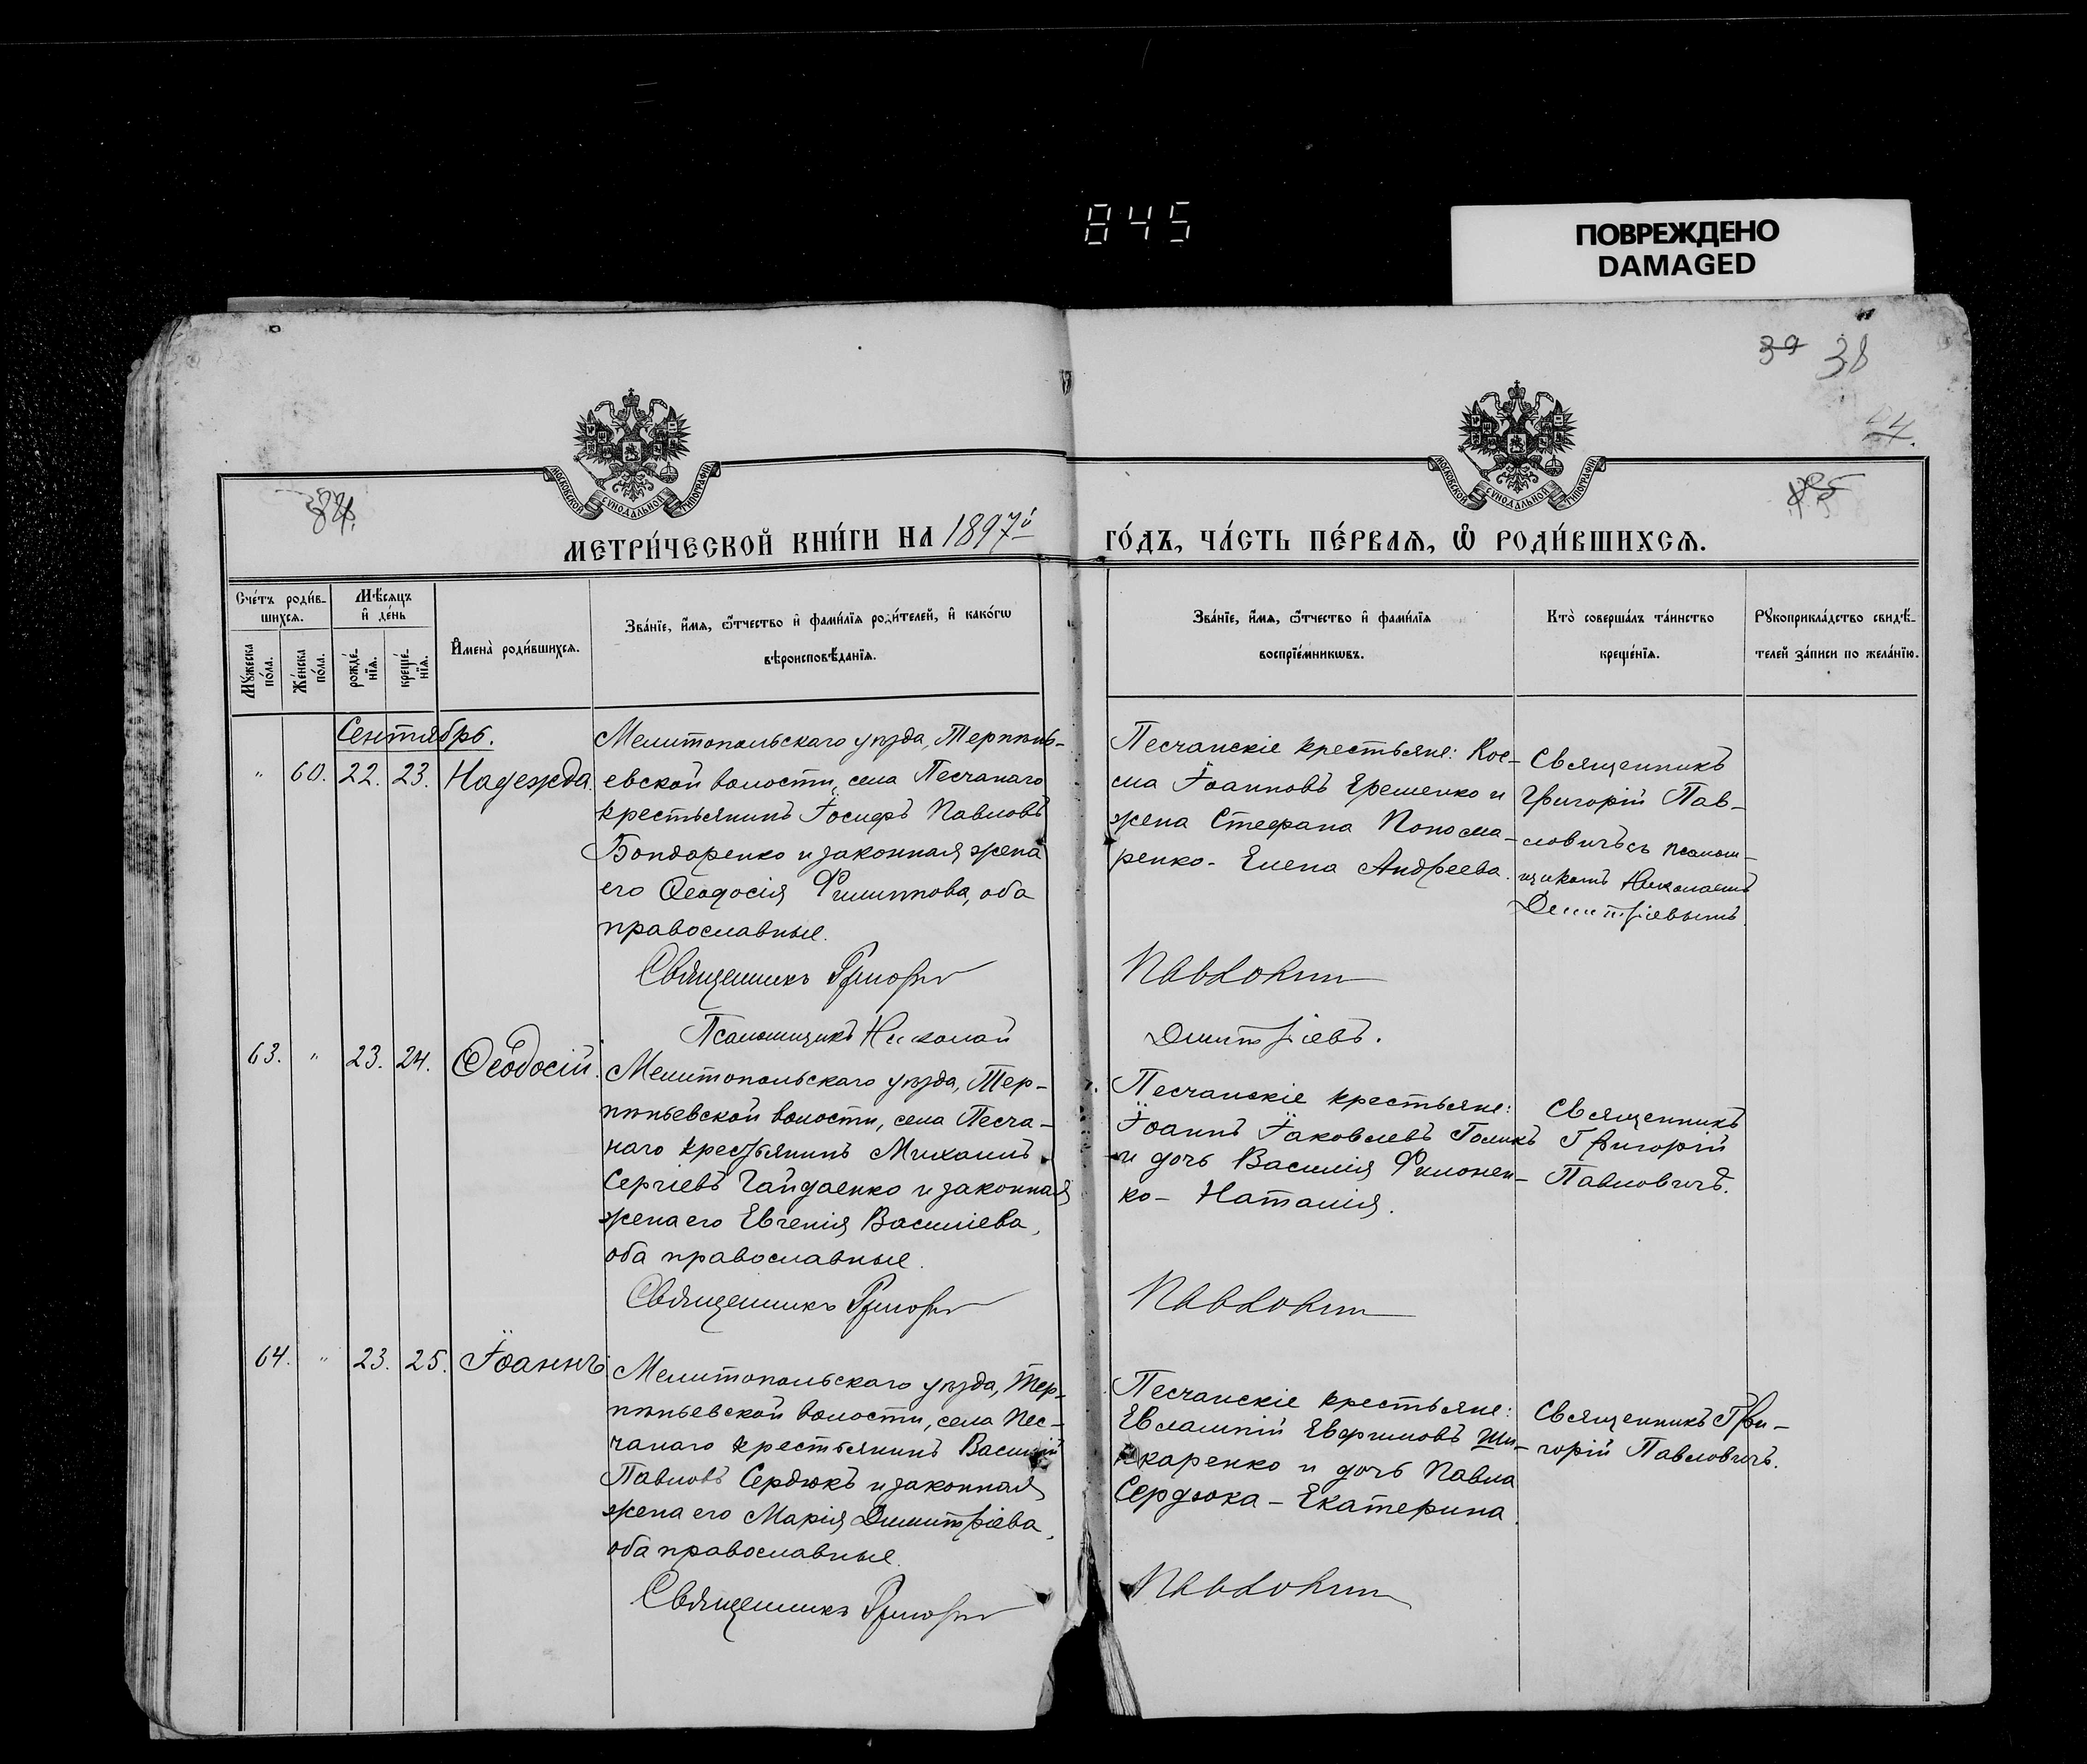 845
ПОВРЕЖДЕНО
DAMAGED
39 38
МОСКОВСКОЙ СУНОДАЛЬНОЙ ТИПОГРАФІИ
МОСКОВСКОЙ СУНОДАЛЬНОЙ ТИПОГРАФІИ
МЕТРИ́ЧЕСКОЙ КНИ́ГИ НА 1897й
ГО́ДЪ, ЧА́СТЬ ПЕ́РВАѦ, Ѡ҆ РОДИ́ВШИХСѦ.
Сче́тъ роди́в-
шихсѧ.
Мꙋ́жеска по́ла.
Же́нска по́ла.
Мѣ́сѧцъ
и҆ де́нь
рожде́-
нїѧ.
креще́-
нїѧ.
И҆мена̀ роди́вшихсѧ.
Зва́нїе, и҆́мѧ, ѻ҆́тчество и҆ фами́лїѧ роди́телей, и҆ како́гѡ
вѣроисповѣ́данїѧ.
Зва́нїе, и҆́мѧ, ѻ҆́тчество и҆ фами́лїѧ
воспрїе́мникѡвъ.
Кто̀ соверша́лъ та́инство
креще́нїѧ.
Рꙋкоприкла́дство свидѣ́-
телей за́писи по жела́нїю.
Сентябрь.
" 60. 22. 23. Надежда.
Мелитопольскаго уѣзда, Терпѣнь-
евской волости, села Песчанаго
крестьянинъ Іосифъ Павловъ
Бондаренко и законная жена
его Ѳеодосія Филиппова, оба
православные.
Священникъ Григорій
Псаломщикъ Николай
Песчанскіе крестьяне: Кос-
ма Іоанновъ Ерешенко и
жена Стефана Поносма-
ренко - Елена Андреева.
Павловичъ
Дмитріевъ.
Священникъ
Григорій Пав-
ловичъ съ псалом-
щикомъ Николаемъ
Дмитріевымъ
63. " 23. 24. Ѳеодосій.
Мелитопольскаго уѣзда, Тер-
пѣньевской волости, села Песча-
наго крестьянинъ Михаилъ
Сергіевъ Гайдаенко и законная
жена его Евгенія Василіева,
оба православные.
Священникъ Григорій
Песчанскіе крестьяне:
Іоаннъ Іаковлевъ Голикъ
и дочь Василія Филонен-
ко - Наталія.
Павловичъ
Священникъ
Григорій
Павловичъ.
64. " 23. 25. Іоаннъ.
Мелитопольскаго уѣзда, Тер-
пѣньевской волости, села Пес-
чанаго крестьянинъ Василій
Павловъ Сердюкъ и законная
жена его Марія Димитріева,
оба православные.
Священникъ Григорій
Песчанскіе крестьяне:
Евлампій Евфимовъ Ши-
каренко и дочь Павла
Сердюка - Екатерина.
Павловичъ
Священникъ Гри-
горій Павловичъ.